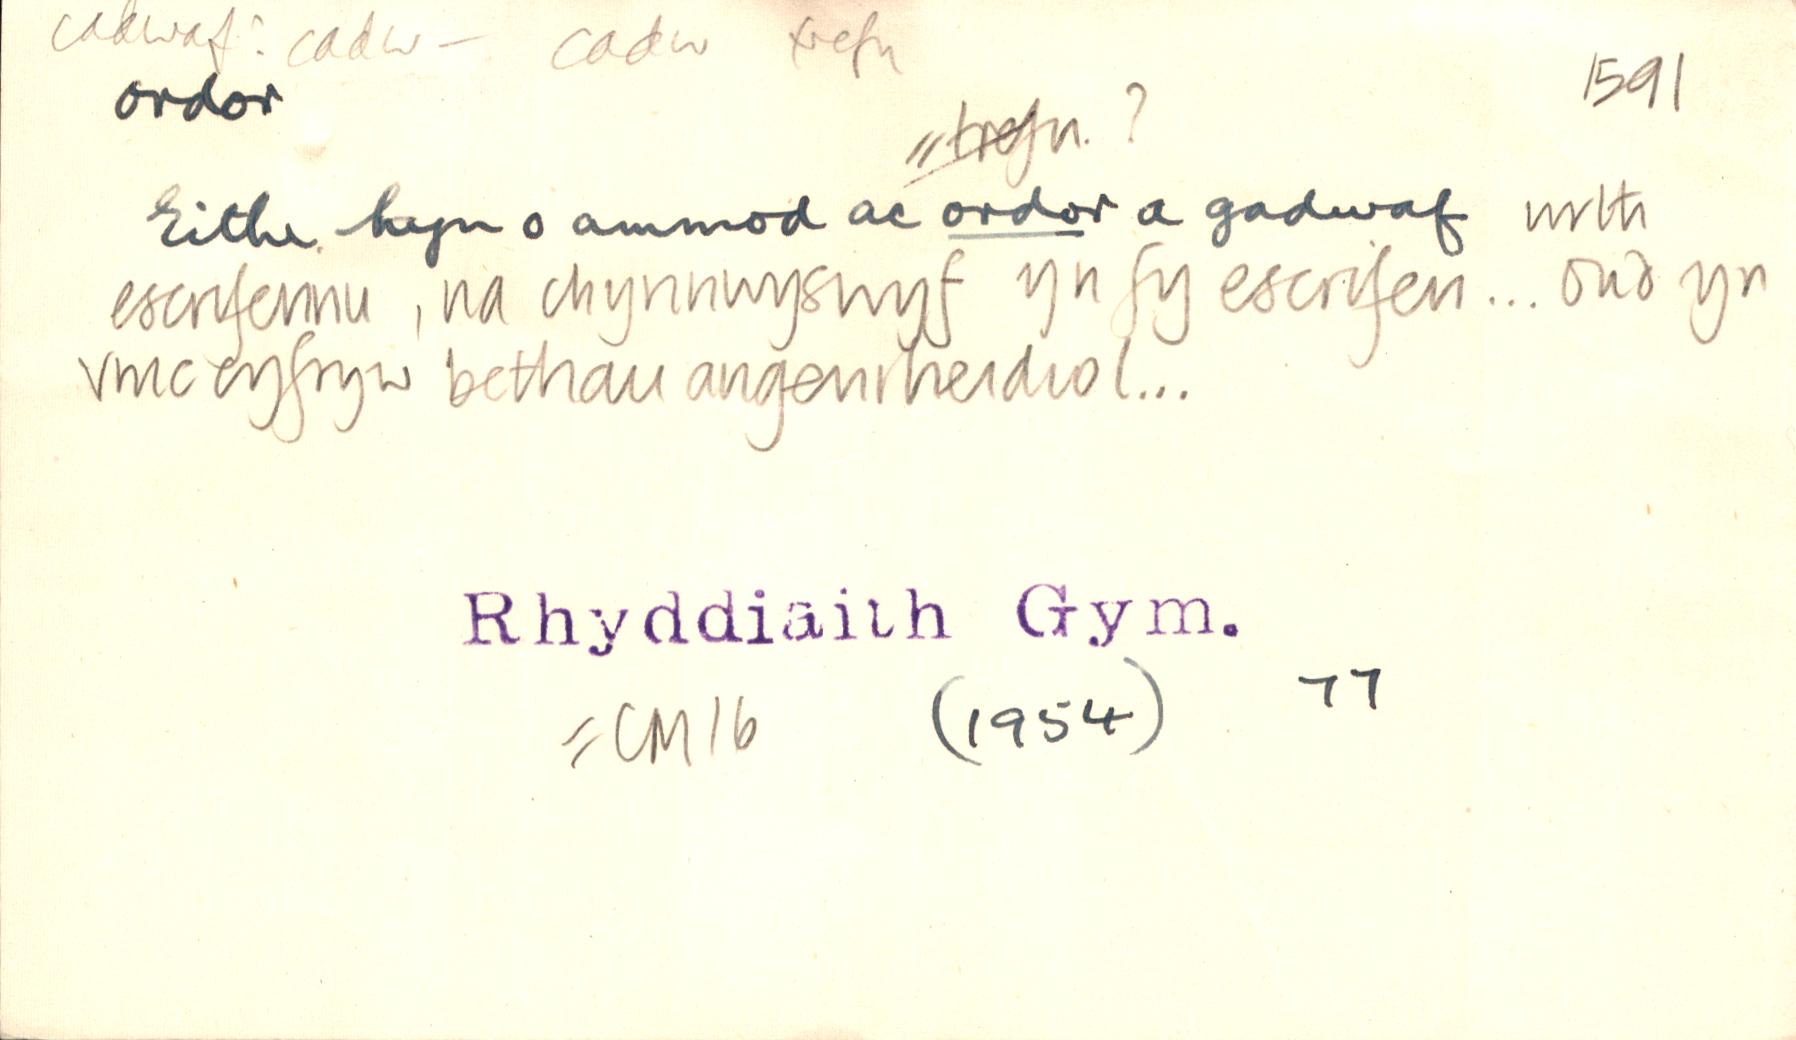 cadwaf: cadw — cadw trefn
ordor 1591
"trefn. ?
Eithr hyn o ammod ac ordor a gadwaf wrth
escrifennu, na chynnwyswyf yn fy escrifen... ond yn
vnic cyfryw bethau angenrheidiol...
Rhyddiaith Gym.
= CM 16 (1954) 77